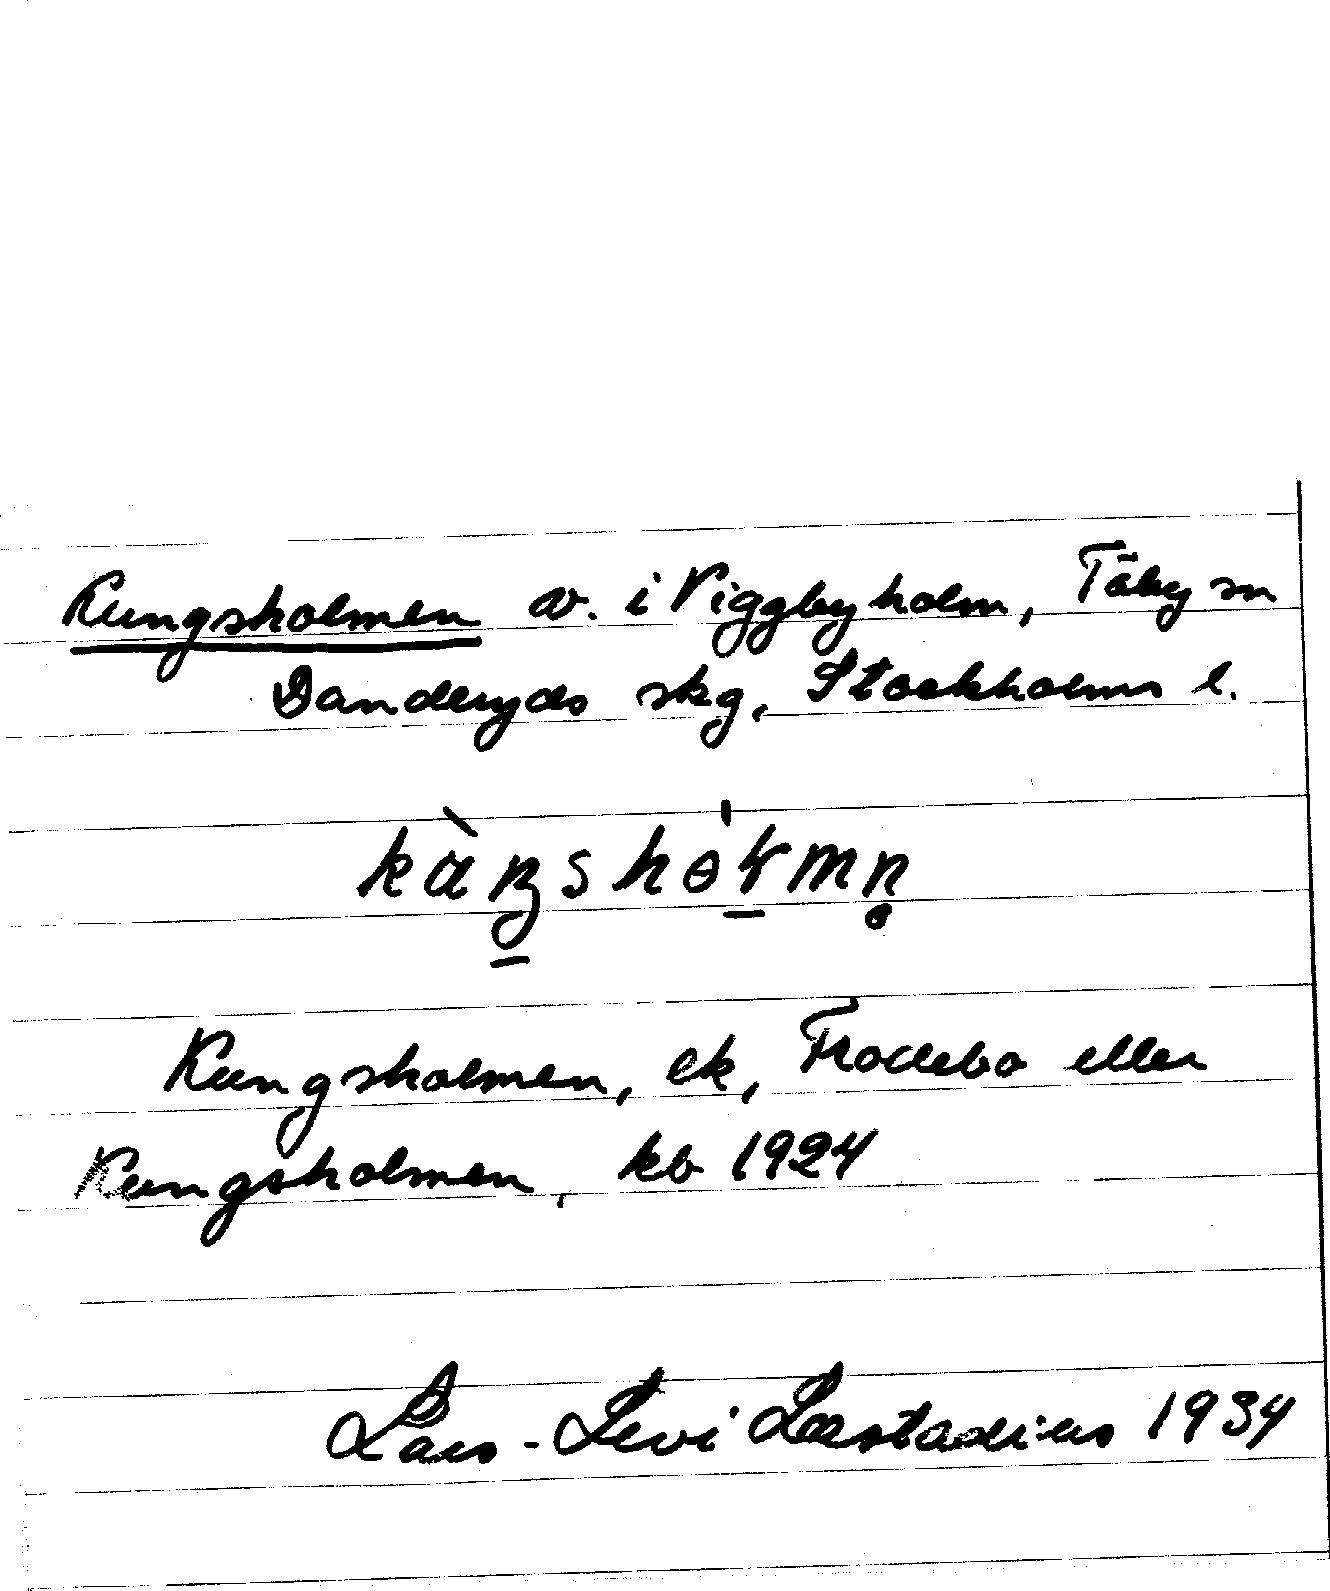 Kungsholmen av. i Viggbyholm, Täby sn
Danderyds skg, Stockholms l.
Kungsholmen, ek, Frodebo eller
Kungsholmen, kb 1924
Lars-Levi Læstadius 1934